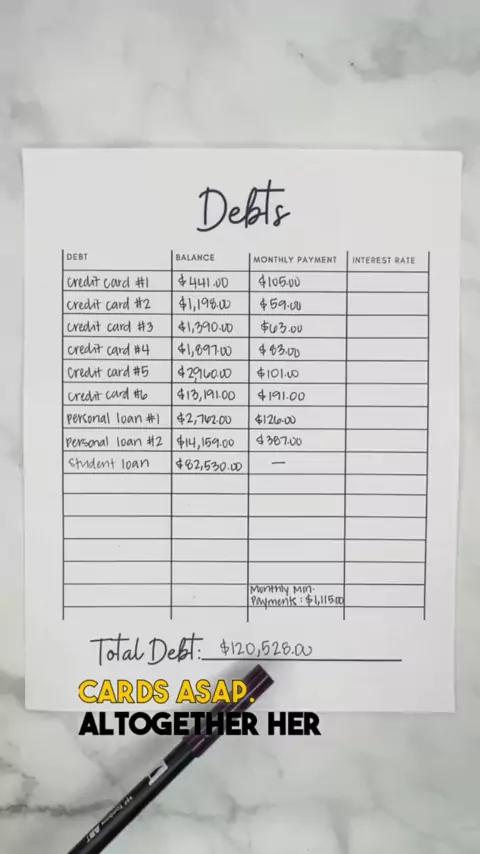 Debts
DEBT BALANCE MONTHLY PAYMENT INTEREST RATE
credit card #1 $441.00 $105.00
credit card #2 $1,198.00 $59.00
credit card #3 $1,390.00 $63.00
credit card #4 $1,897.00 $83.00
credit card #5 $2,960.00 $101.00
credit card #6 $13,191.00 $191.00
personal loan #1 $2,762.00 $126.00
personal loan #2 $14,159.00 $387.00
student loan $82,530.00 —
Monthly Min.
Payments: $1,115.00
Total Debt: $120,528.00
CARDS ASAP.
ALTOGETHER HER